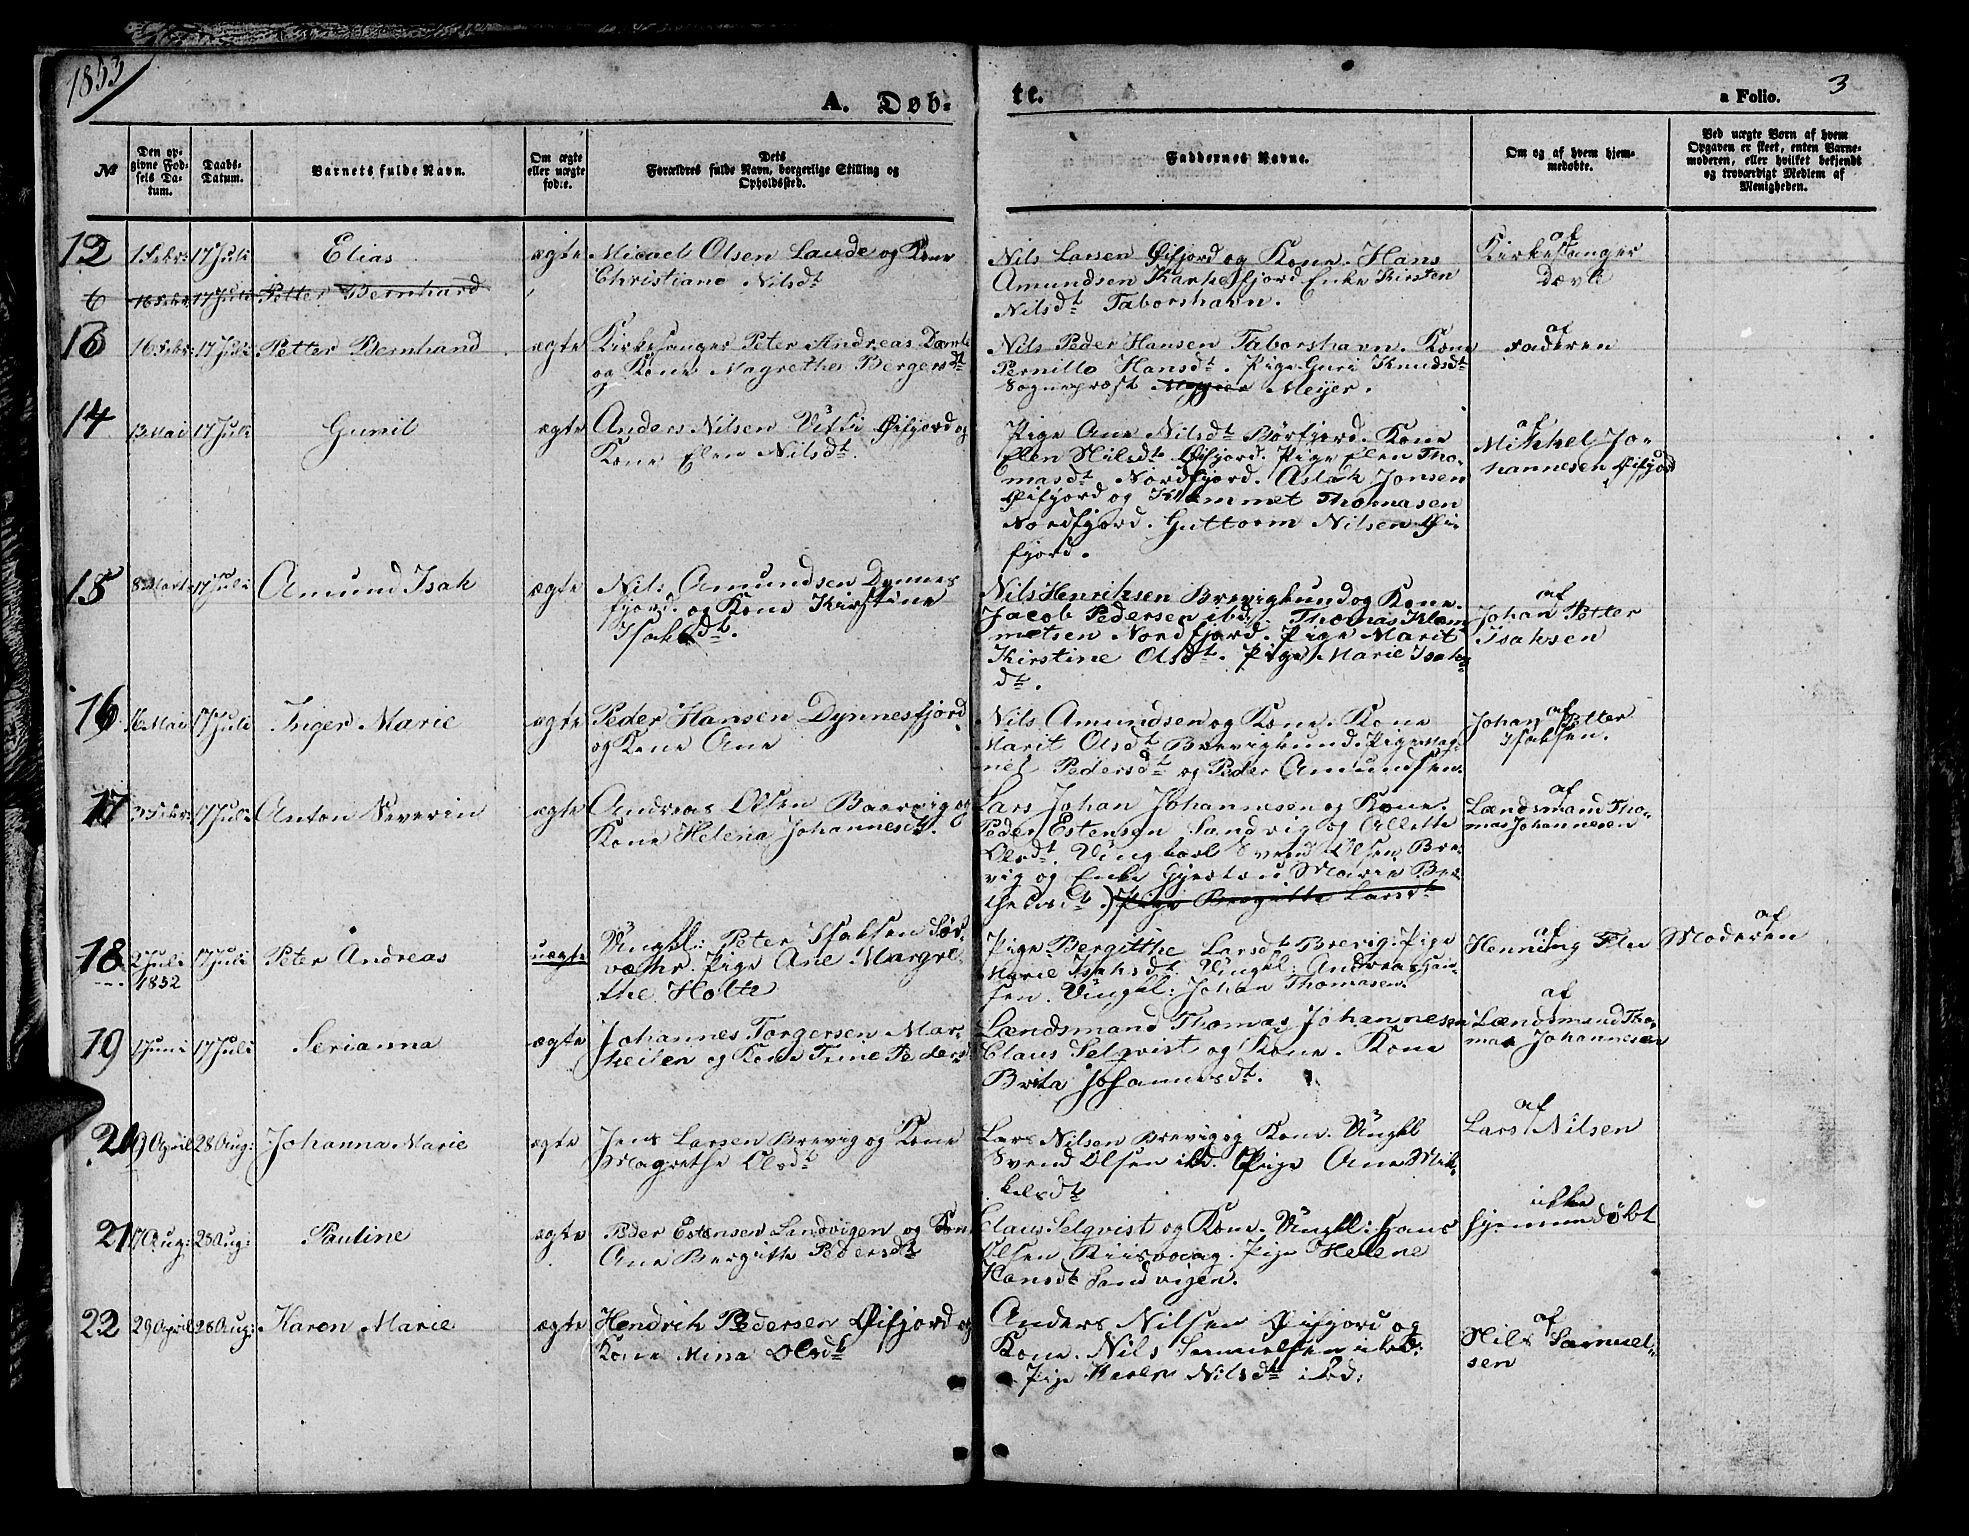 1853
A. Døb-
te.
a Folio. 3
№
Den op-
givne Fød-
sels Da-
tum.
Daabs-
Datum.
Barnets fulde Navn.
Om ægte
eller uægte
født.
Dets
Forældres fulde Navn, borgerlige Stilling og
Opholdssted.
Faddernes Navne.
Om og af hvem hjem-
medøbte.
Ved uægte Børn af hvem
Opgaven er skeet, enten Barne-
moderen, eller hvilket bekjendt
og troværdigt Medlem af
Menigheden.
12 1 Febr: 17 Juli Elias ægte Micael Olsen Lande og Kone
Christiane Nilsdt
Nils Larsen Øifjord og Kone. Hans
Amundsen Karhesfjord Enke Kirsten
Nilsdt Taborshavn.
af
Kirkesanger
Dævle
6 16 Febr 17 Juli Petter Bernhard
13 16 Febr 17 Juli Petter Bernhard ægte Kirkesanger Peter Andreas Dævle
og Kone Magrethe Bergersdt
Nils Peder Hansen Taborshavn. Kone
Pernille Hansdt. Pige Guri Knudsdt
Sognepræst Meyer.
af
Faderen
14 13 Mai 17 Juli Gunil ægte Anders Nilsen Øifjord og
Kone Elen Nilsdt.
Pige Ane Nilsdt Børfjord. Kone
Elen Nilsdt Øifjord. Pige Elen Tho-
masdt Nordfjord. Aslak Jonsen
Øifjord og Klemmet Thomasen
Nordfjord. Guttorm Nilsen Øi-
fjord.
af
Mikkel Jo-
hannesen Øifjord
15 8 Marts 17 Juli Amund Isak ægte Nils Amundsen Dynnes
fjord. og Kone Kirstine
Isaksdt.
Nils Henriksen Brevigsund og Kone.
Jacob Pedersen ibd. Thomas Klem
metsen Nordfjord. Pige Marit
Kirstine Olsdt. Pige Marie Isaks
dt.
af
Johan Petter
Isaksen
16 16 Mai 17 Juli Inger Marie ægte Peder Hansen Dynnesfjord
og Kone Ane
Nils Amundsen og Kone. Kone
Marit Olsdt Brevigsund. Pige Mag-
net Pedersdt og Peder Amundsen.
af
Johan Petter
Isaksen.
17 3 Febr: 17 Juli Anton Severin ægte Andreas Olsen Baarvig og
Kone Helena Johannesdt.
Lars Johan Johannesen og Kone.
Peder Estensen Sandvig og Allette
Olsdt. Ungkarl Svend Olsen Bre-
vig og Enke Marie Ber
thelsdt. Pige Bergitte Larsdt
af
Lændsmand Tho-
mas Johannesen
18 2 Juli 17 Juli Peter Andreas uægte Ungkl: Peter Isaksen Sør-
1852
vær. Pige Ane Margre-
the Holte
Pige Bergitthe Larsdt Brevig. Pige
Marie Isaksdt. Ungkl: Andreas Han-
sen. Ungkl: Johan Thomasen.
af
Henning
af
Moderen
19 1 Juni 17 Juli Serianna ægte Johannes Torgersen Mar-
heilen og Kone Trine Pedersd
Lændsmand Thomas Johannesen
Claus Selqvist og Kone. Kone
Brita Johannesdt.
af
Lændsmand Tho-
mas Johannesen
20 9 April 28 Aug: Johanna Marie ægte Jens Larsen Brevig og Kone
Magrethe Olsdt
Lars Nilsen Brevig og Kone. Ungkl
Svend Olsen ibd. Pige Ane Mik-
kelsdt
af
Lars Nilsen
21 17 Aug: 28 Aug: Pauline ægte Peder Estensen Sandvigen og Kone
Ane Bergitte Pedersdt
Claus Selqvist og Kone. Ungkl: Hans
Olsen Riisvaag. Pige Helene
Hansdt Sandvigen.
ikke
hjemmedøbt
22 29 April 28 Aug: Karen Marie ægte Hendrik Pedersen Øifjord og
Kone Mina Olsdt
Anders Nilsen Øifjord og
Kone. Nils Samuelsen ibd:
Pige Karen Nilsdt ibd:
af
Nils Samuel-
sen